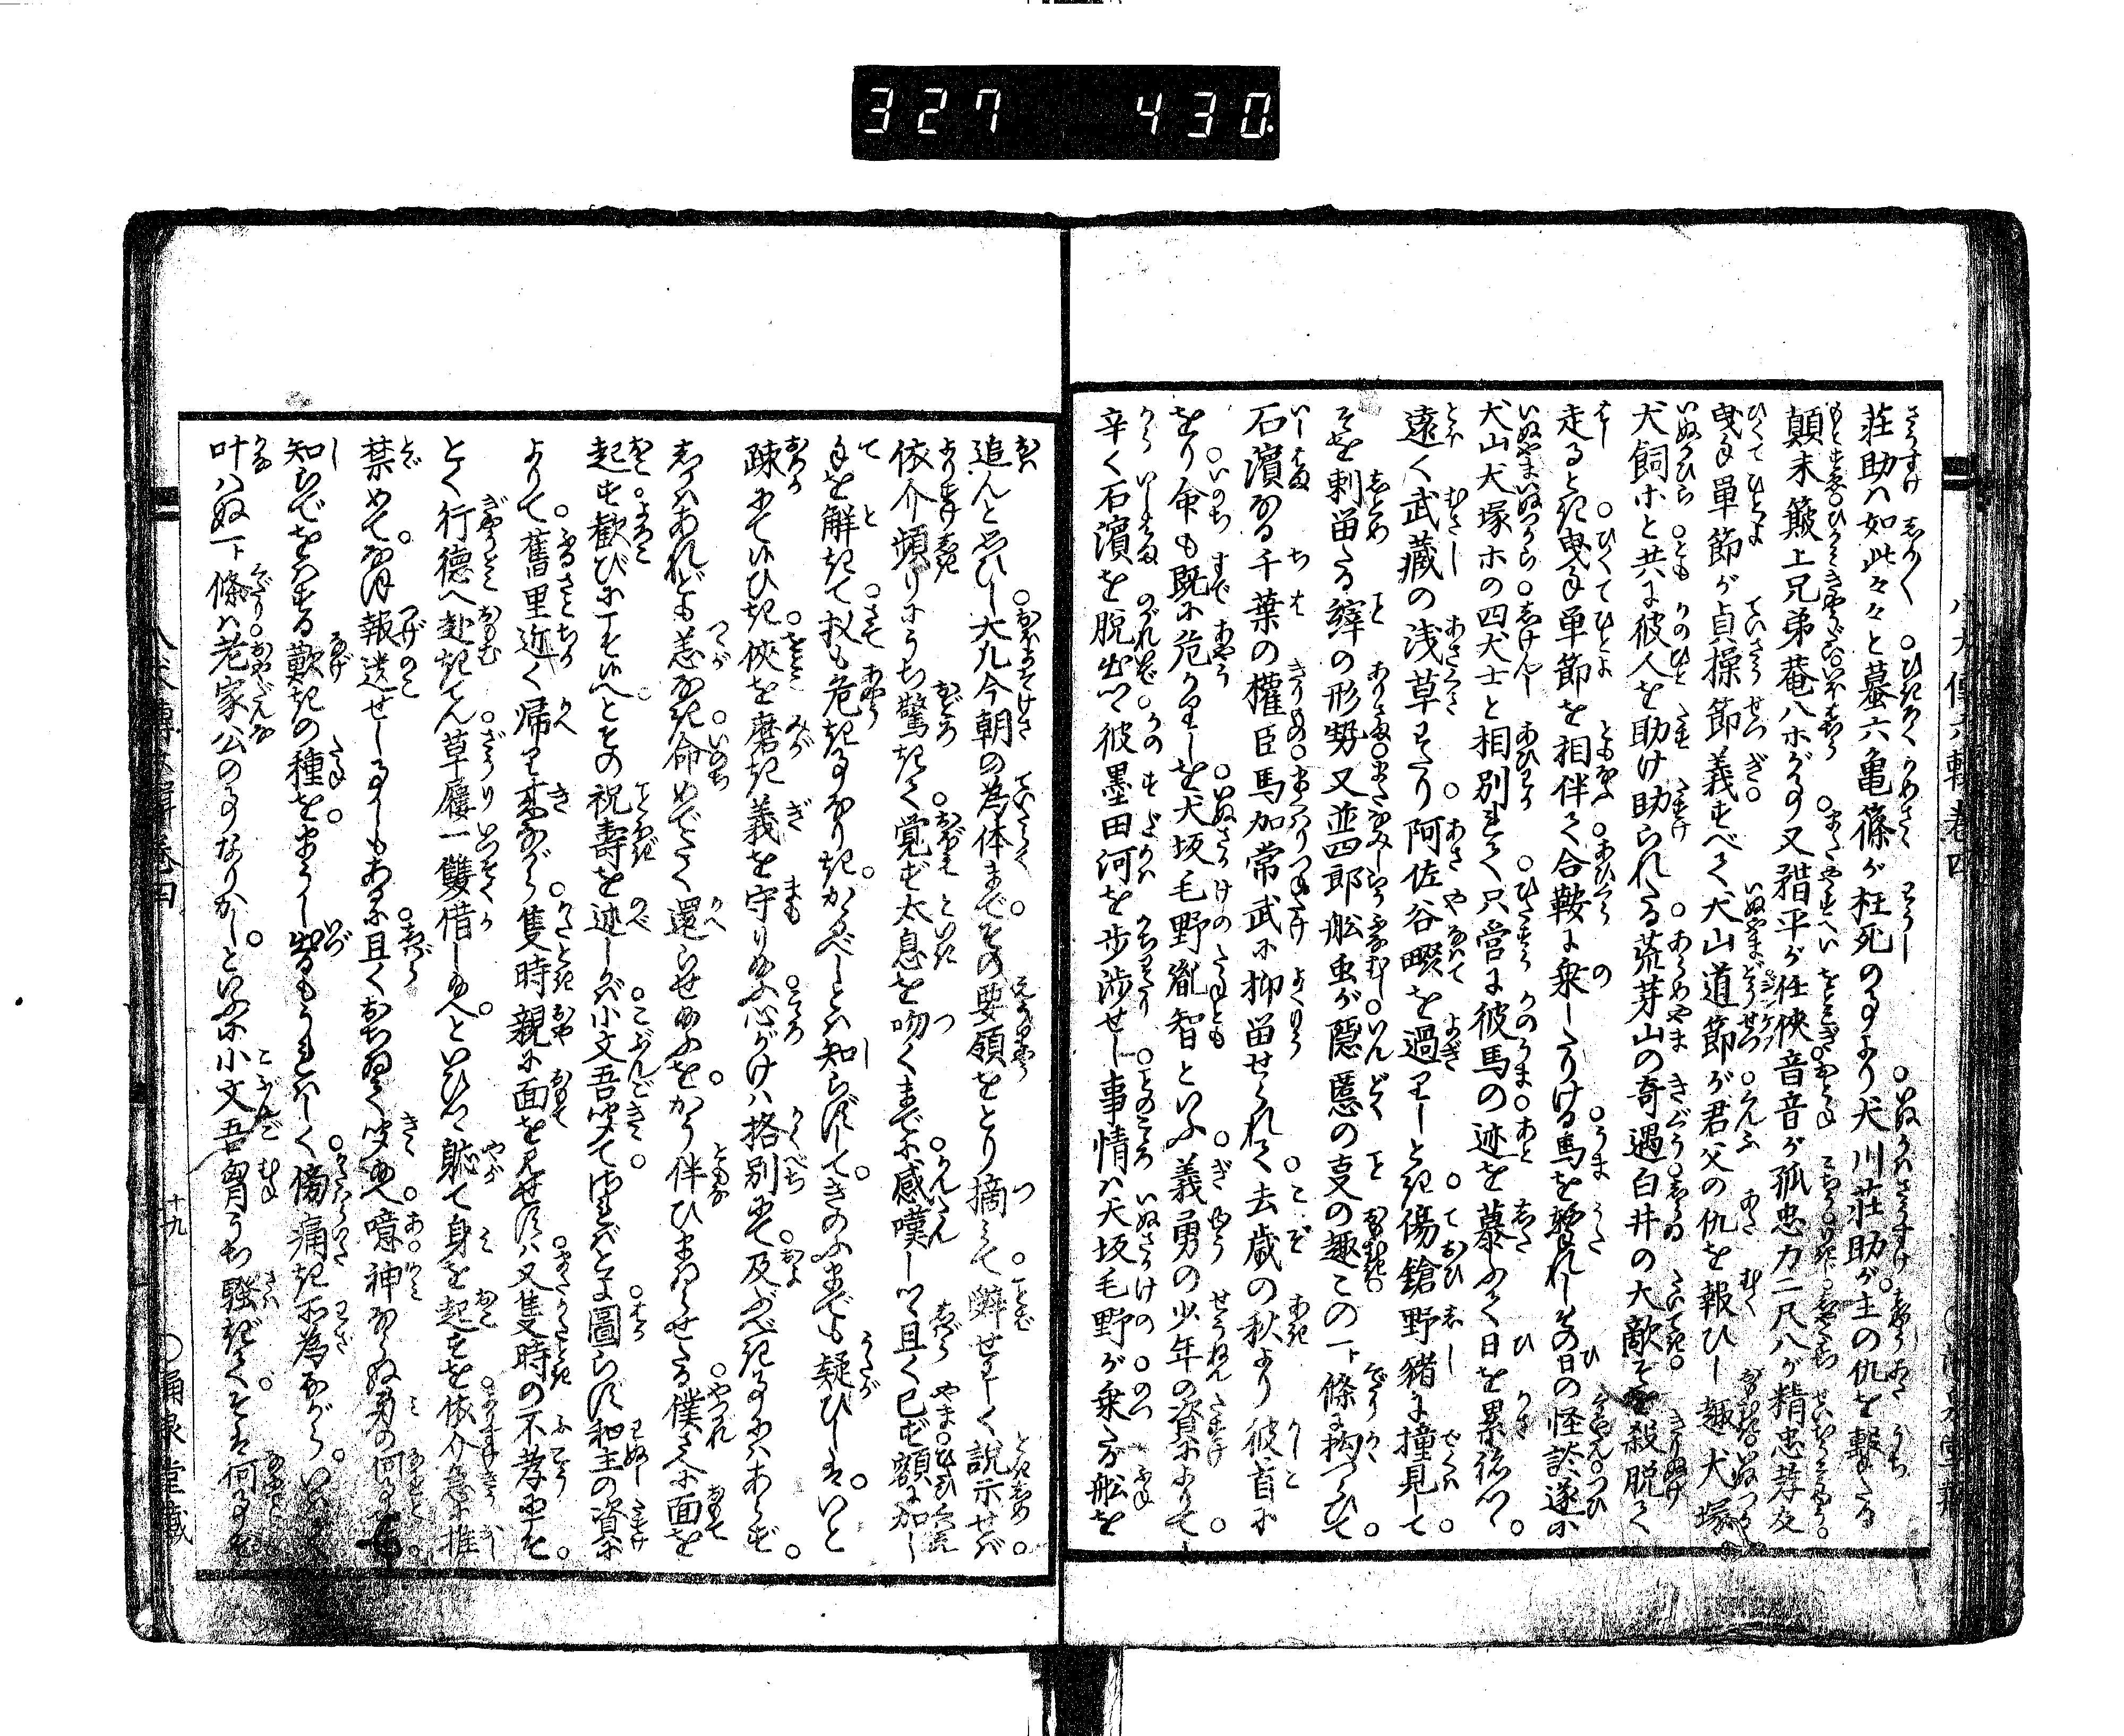 327 430
八犬傳六輯卷四
荘助ハ如此々々と蟇六亀篠が枉死の事より犬川荘助が主の仇を撃たる
顛末簸上兄弟菴八ホが事又猎平が任侠音音が孤忠力二尺八が精忠孝及
曳手單節が貞操節義すべて犬山道節が君父の仇を報ひし趣犬塚
犬飼ホと共に彼人を助け助られたる荒芽山の奇遇白井の大敵そを殺脱て
走るとき曳手単節を相伴て合鞍に乗したりける馬を駭れしその日の怪談遂に
犬山犬塚ホの四犬士と相別れて只管に彼馬の迹を慕ふて日を累ねつ
遠く武蔵の浅草なり阿佐谷畷を過りしとき傷鎗野猪に撞見して
そを刺畄たる縡の形勢又並四郎舩虫が隠慝の支の趣この一條に抅づらひて
石濵なる千葉の權臣馬加常武に抑畄せられて去歳の秋より彼首に
をり命も既に危かりしを犬坂毛野胤智といふ義勇の少年の資によりて
辛く石濵を脱出つ彼墨田河を歩渉せし事情ハ犬坂毛野が乗たる舩を
追んと思ひし犬九今朝の為体までその要領をとり摘みて辭せわしく説示せば
依介頻りにうち驚きて覚ず太息を吻くまでに感嘆しつゝ且く已ず額に加し
手を解きて扨も危き事なりきかゝるべしとハ知らずしてきのふまでも疑ひしハいと
疎にてひき侠を磨き義を守り給ふ心がけハ格別にて及ぶべき事にハあらず
しかハあれども恙なき命めでたく還らせ給ふをかう伴ひまゐらせたる僕さへに面を
起す歓びに一そへとその祝壽を述しかバ小文吾聞てさればとよ圖らず和主の資に
よりて舊里近く帰り来ながら隻時親に面を見せずハ又隻時の不孝なり
とく行徳へ赴きてん草履一雙借し給へといひつゝ軈て身を起すを依介急に推
禁めてなほ報遺せし事しもあるに且くおちゐて聞給へ噫神ならぬ身の何
知らでをハする歎きの種をまうし出るもうしく傷痛き所為ながら
叶ハぬ一條ハ老家公の事なりかしといふに小文吾胸うち騒ぎてそハ何事ぞ
八犬傳六輯卷四
十九
○涌泉堂藏